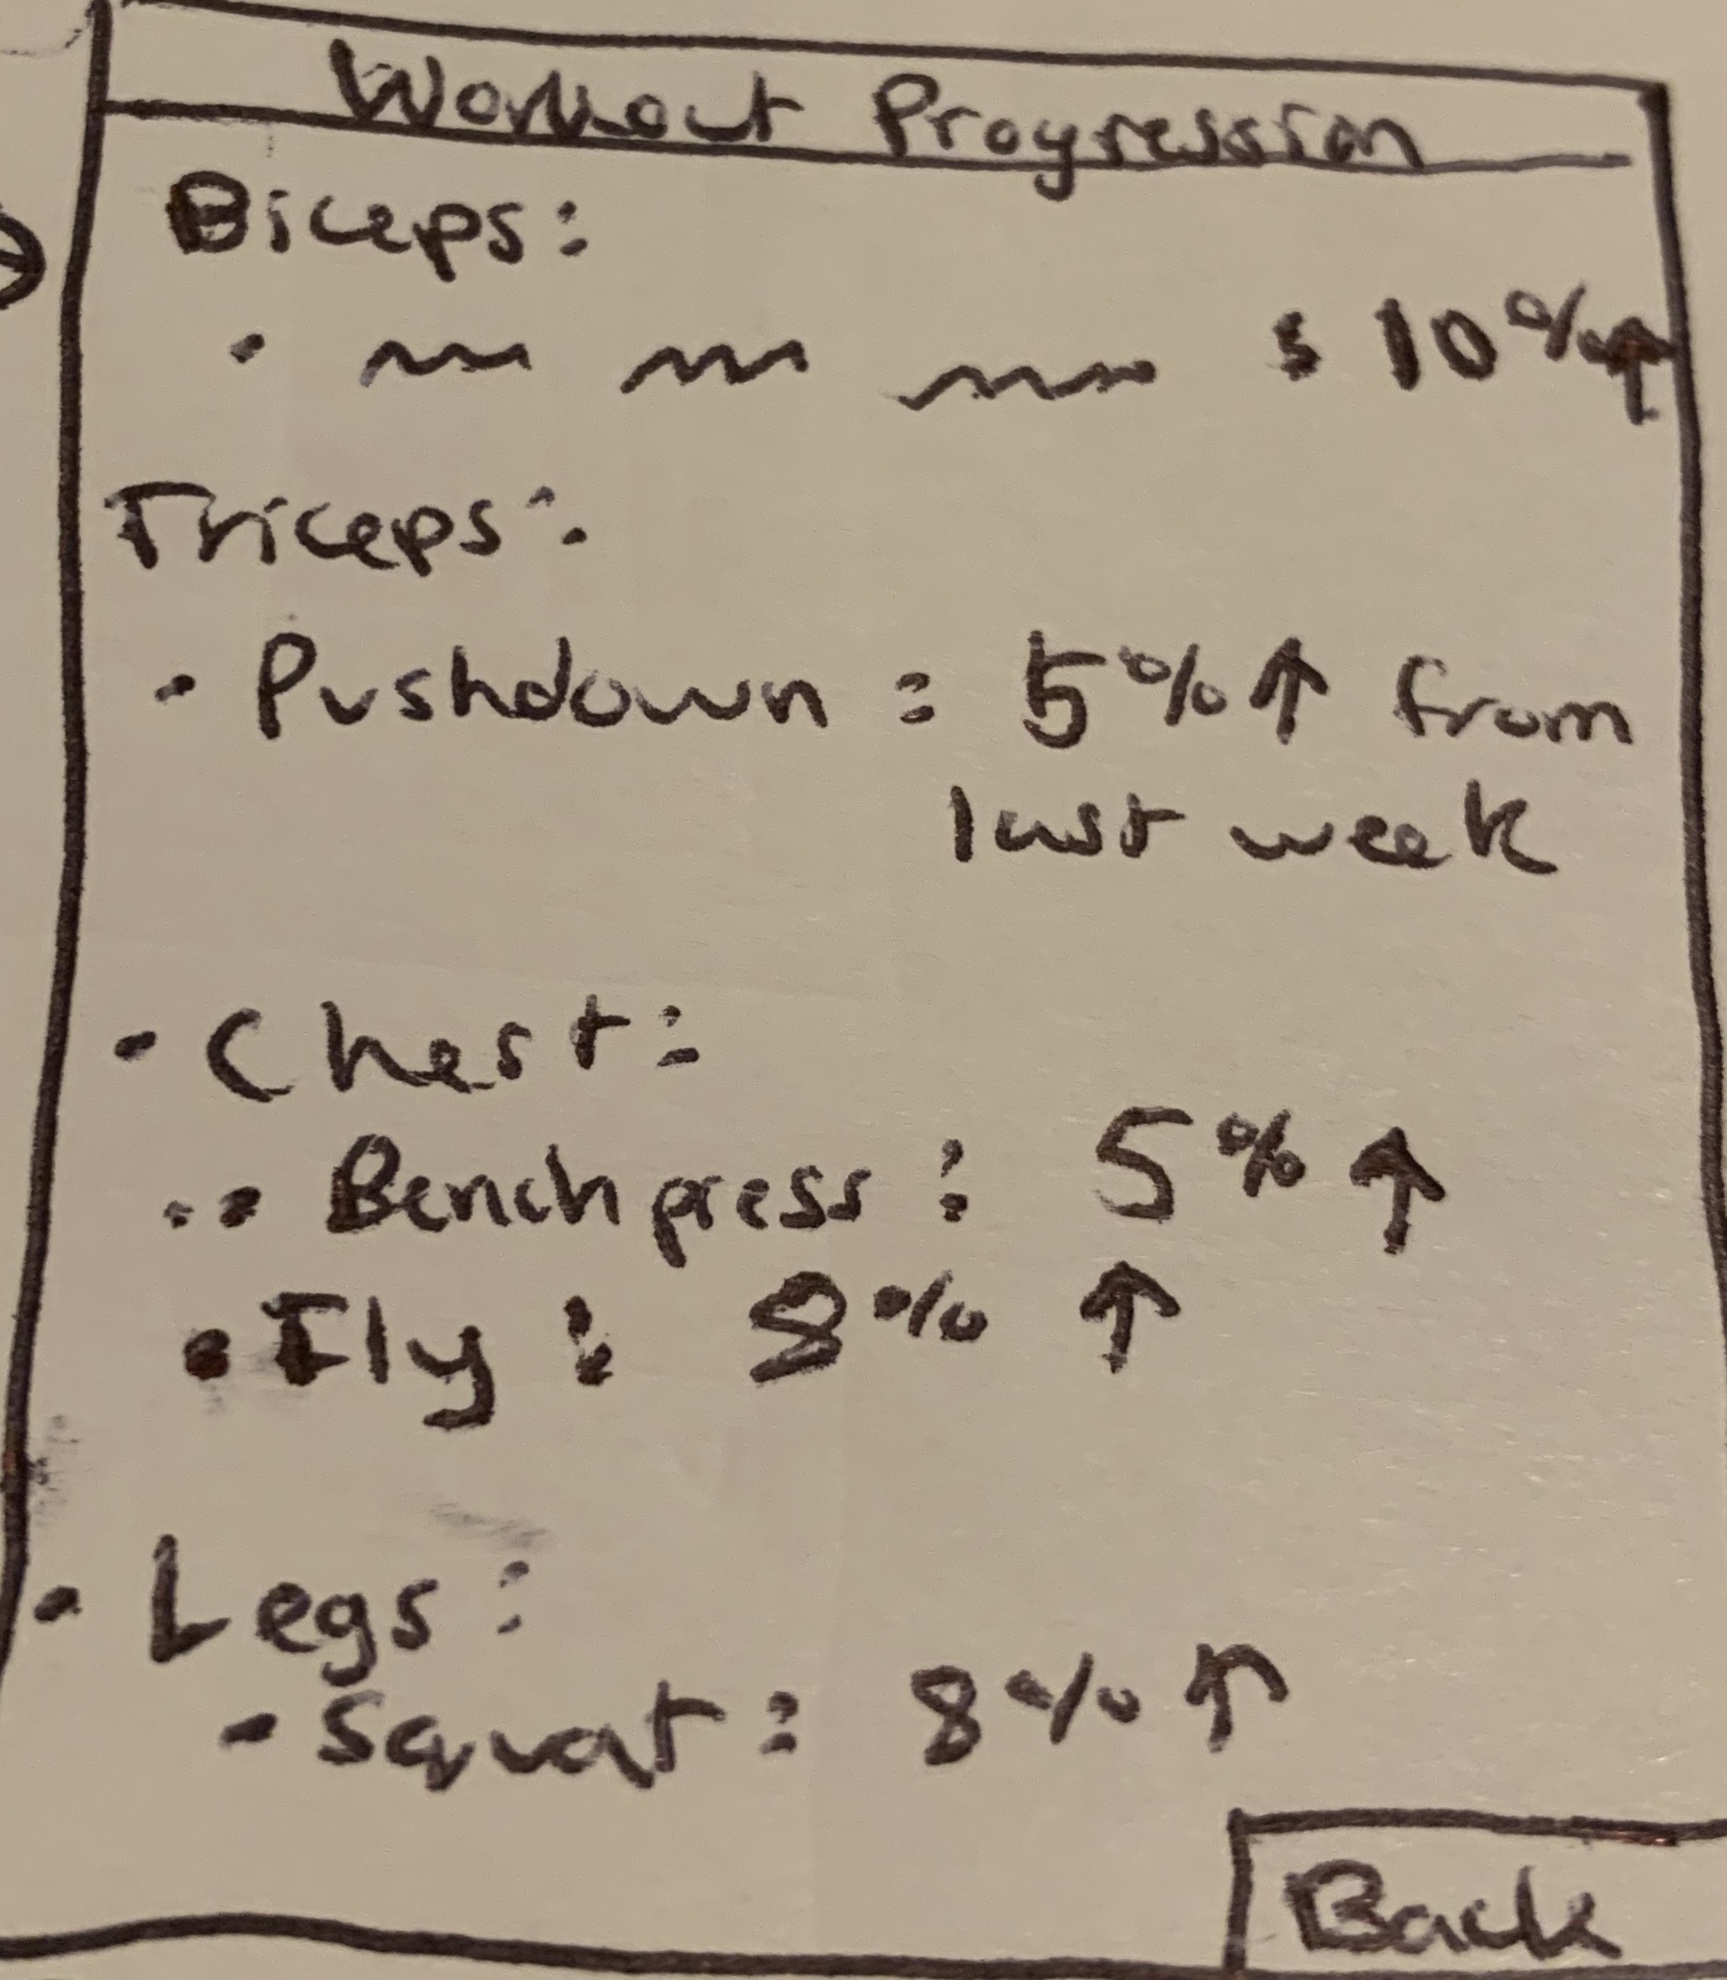 Workout Progression
Biceps:
• : 10%↑
Triceps:
• Pushdown : 5%↑ from
last week
• Chest:
•• Bench press : 5% ↑
• Fly : 8% ↑
• Legs :
• Squat : 8%↑
Back